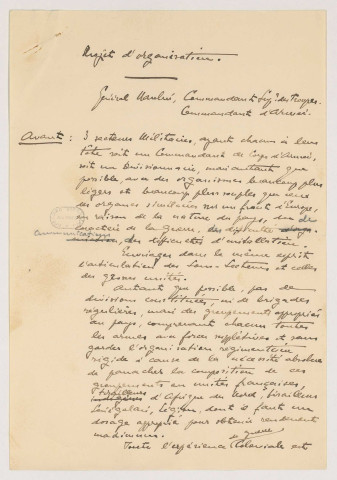 Projet d'organisation.
Général Naulin, Commandant Supr des Troupes.
Commandant d'Armée.
Avant : 3 secteurs Militaires, ayant chacun à leur
tête soit un Commandant de Corps d'Armée,
soit un Divisionnaire, mais autant que
possible, avec des organismes beaucoup plus
légers et beaucoup plus souples que ceux
des organes similaires sur un front d'Europe,
en raison de la nature du pays, du
caractère de la guerre, des
communications
, des difficultés d'installation.
Envisager dans le même esprit
l'articulation des Sous-Secteurs et celles
des grosses unités.
Autant que possible, pas de
divisions constituées, ni de brigades
régulières, mais des groupements appropriés
au pays, comprenant chacun toutes
les armes aux forces supplétives et sans
garder l'organisation régimentaire
rigide à cause de la nécessité absolue
de panacher la composition de ces
groupements en unités françaises,
tirailleurs
d'Afrique du Nord, tirailleurs
sénégalais, légion, dont il faut un
dosage approprié pour obtenir rendement
maximum.
de guerre
Toute l'expérience Coloniale est